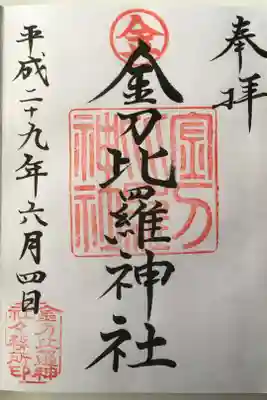 奉拝
金
金刀比羅神社
金刀比羅神社
平成二十九年六月四日
金刀比羅神
社々務所印